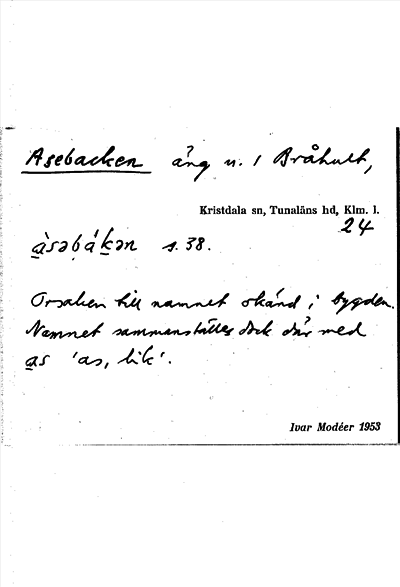 Asebacken äng u. 1 Bråhult,
Kristdala sn, Tunaläns hd, Klm. l.
24
àsəbákən s. 38.
Orsaken till namnet okänd i bygden.
Namnet sammanställes dock där med
as 'as, lik'.
Ivar Modéer 1953